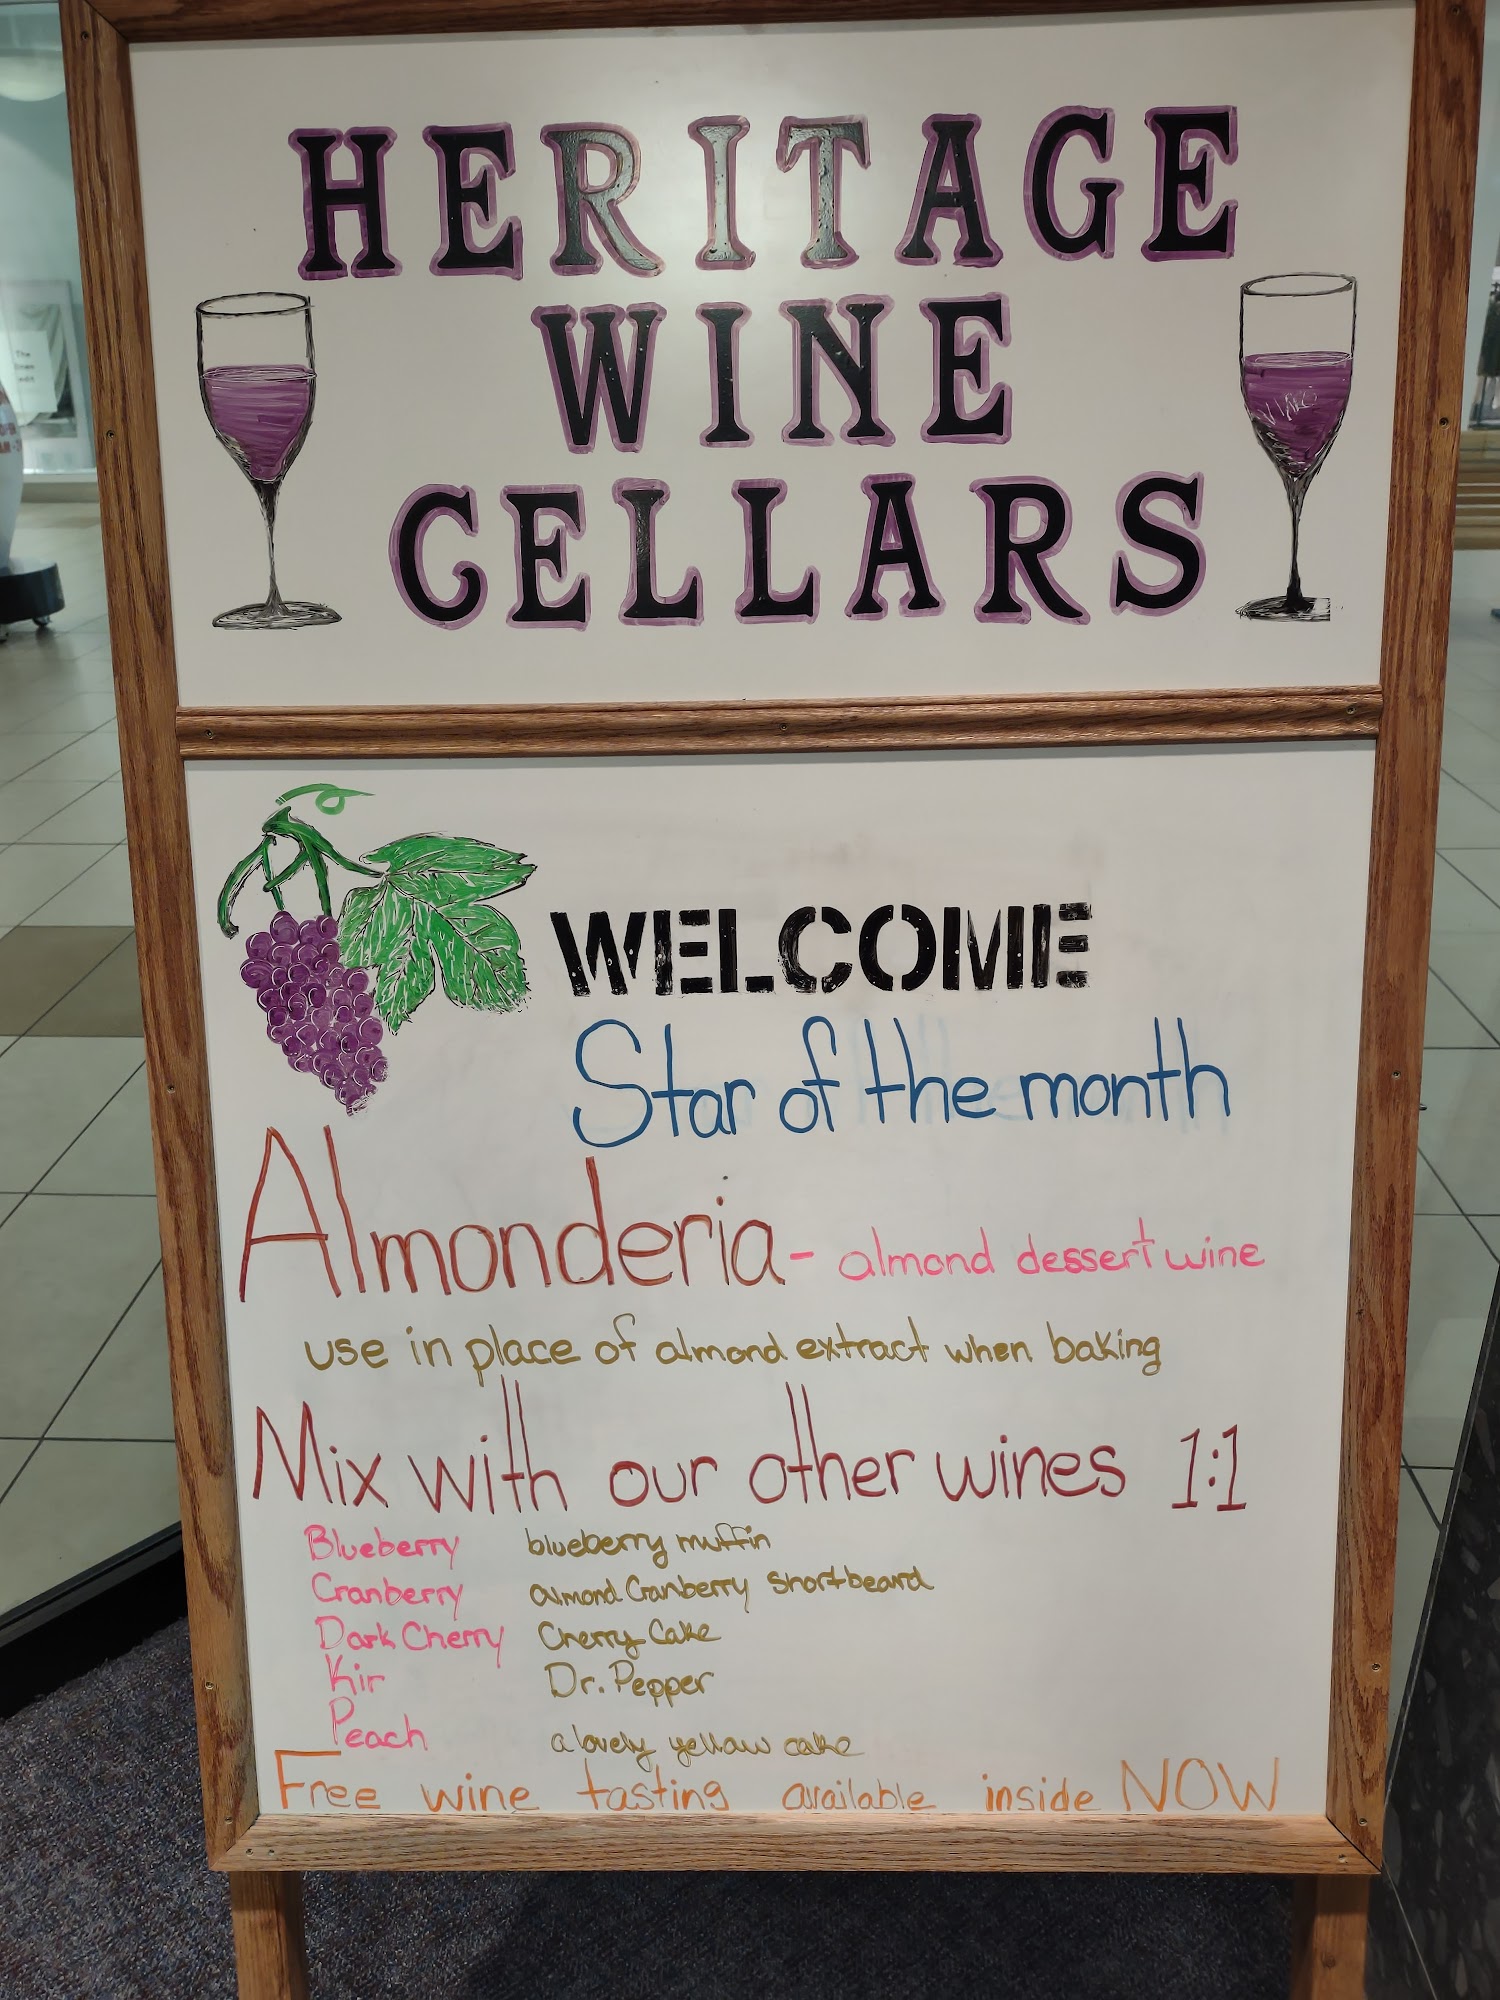 HERITAGE
WINE
CELLARS
WELCOME
Star of the month
Almonderia - almond dessert wine
use in place of almond extract when baking
Mix with our other wines 1:1
Blueberry blueberry muffin
Cranberry almond Cranberry shortbeard
Dark Cherry Cherry Cake
Kir Dr. Pepper
Peach a lovely yellow cake
Free wine tasting available inside NOW